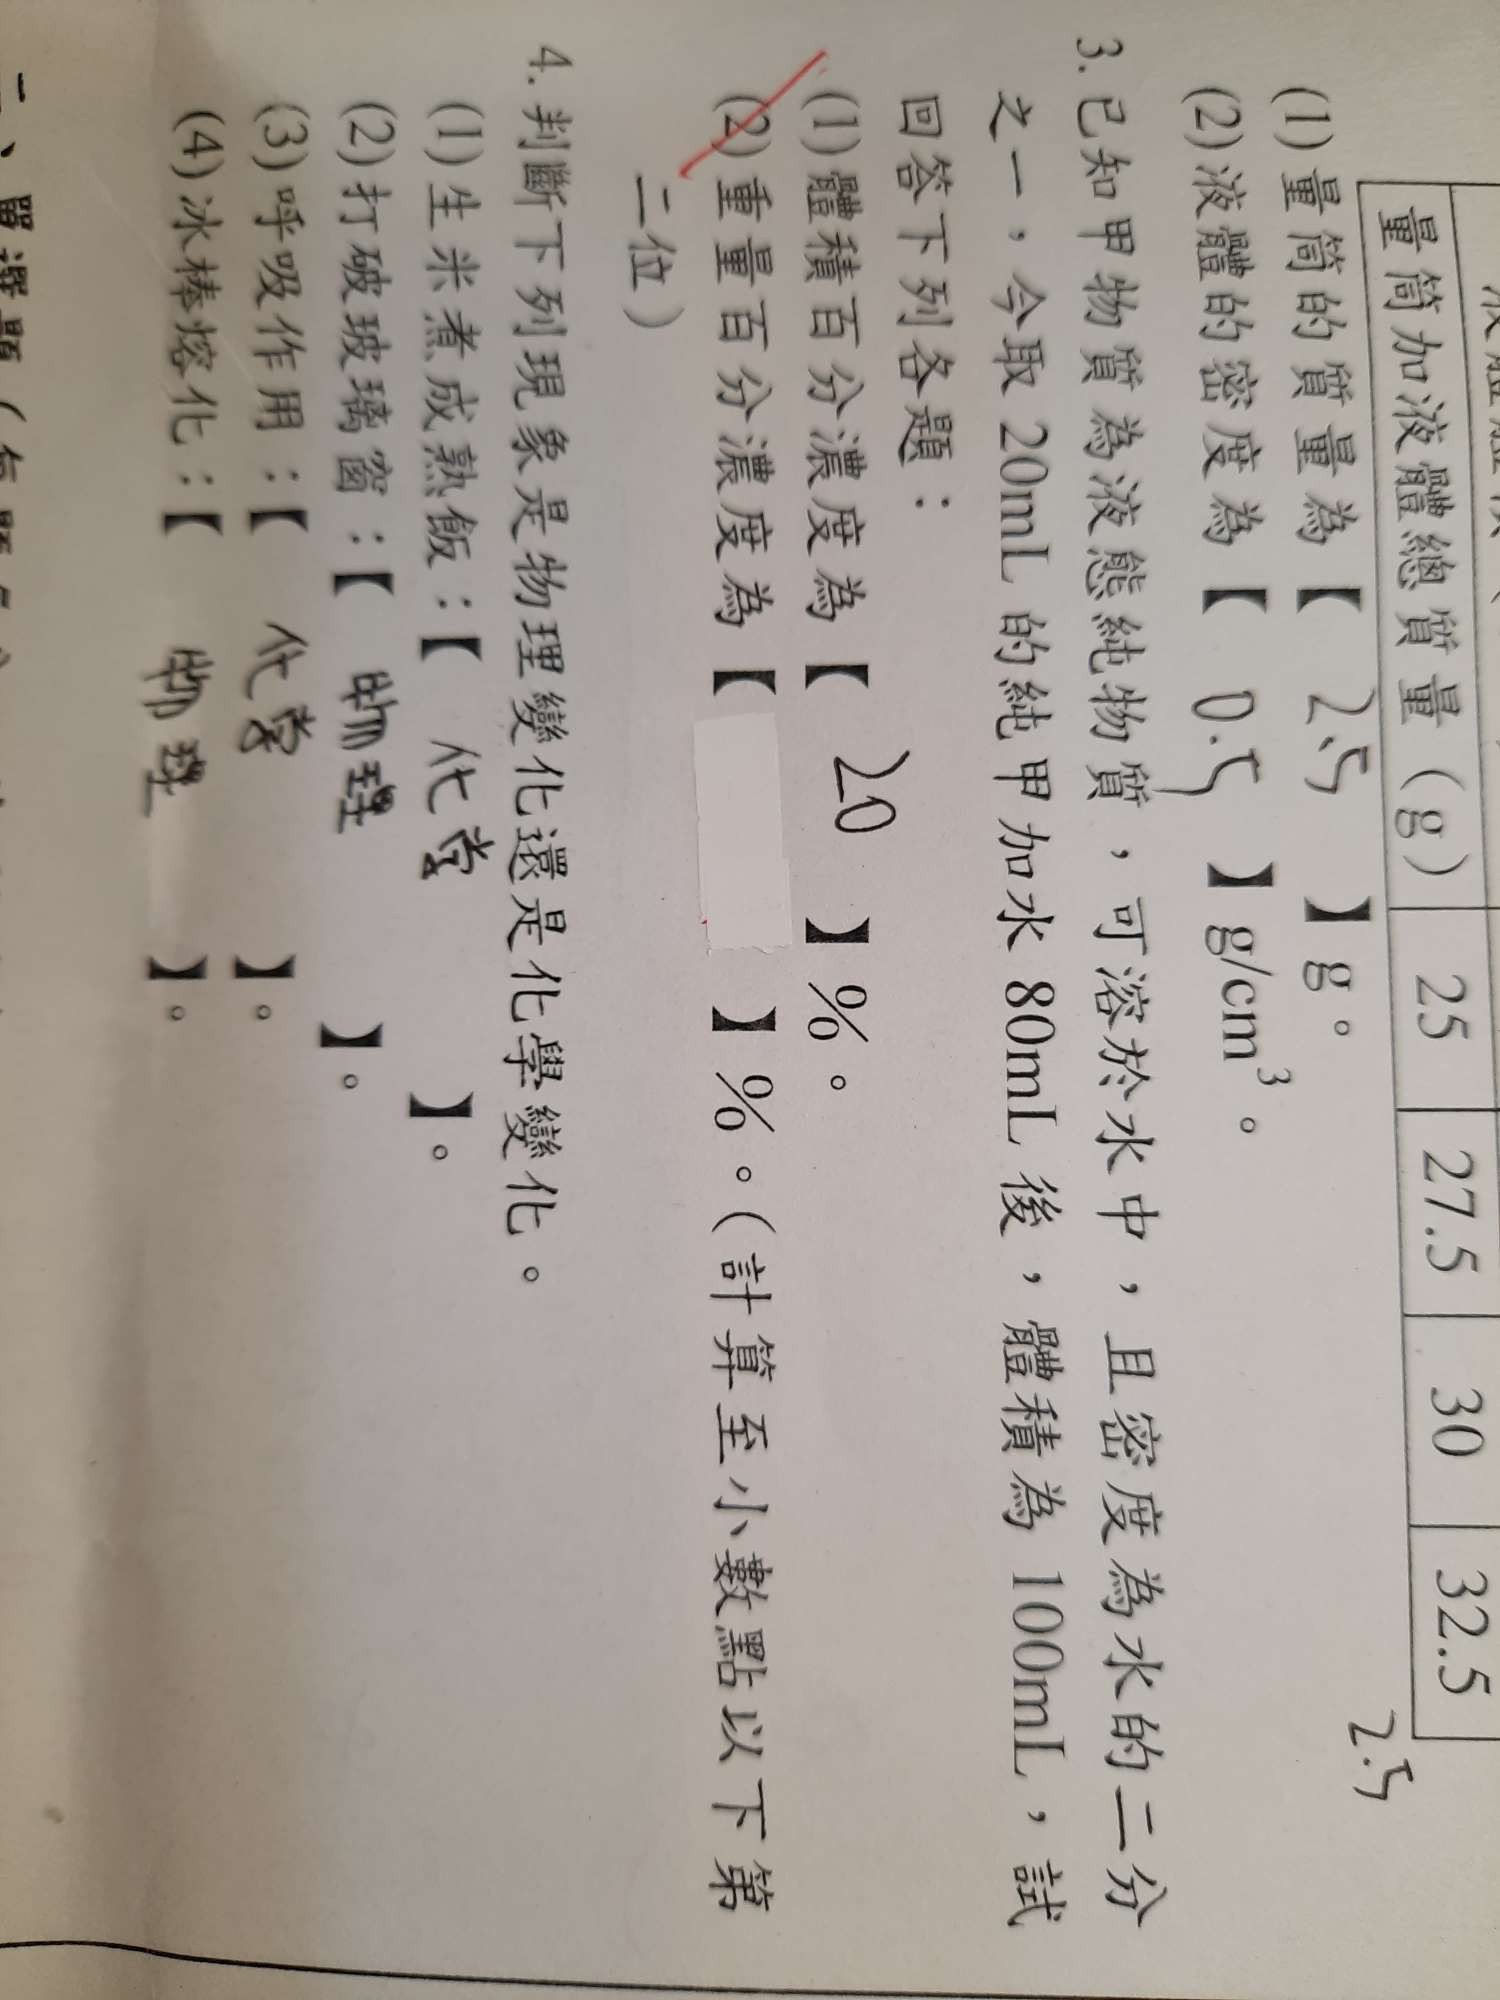 量筒加液體總質量（g） 25 27.5 30 32.5
2.5
(1)量筒的質量為【 2.5 】g。
(2)液體的密度為【 0.5 】g/cm³。
3.已知甲物質為液態純物質，可溶於水中，且密度為水的二分
之一，今取 20mL 的純甲加水 80mL 後，體積為 100mL，試
回答下列各題：
(1)體積百分濃度為【 20 】%。
(2)重量百分濃度為【 】%。(計算至小數點以下第
二位)
4.判斷下列現象是物理變化還是化學變化。
(1)生米煮成熟飯：【 化学 】。
(2)打破玻璃窗：【 物理 】。
(3)呼吸作用：【 化学 】。
(4)冰棒熔化：【 物理 】。